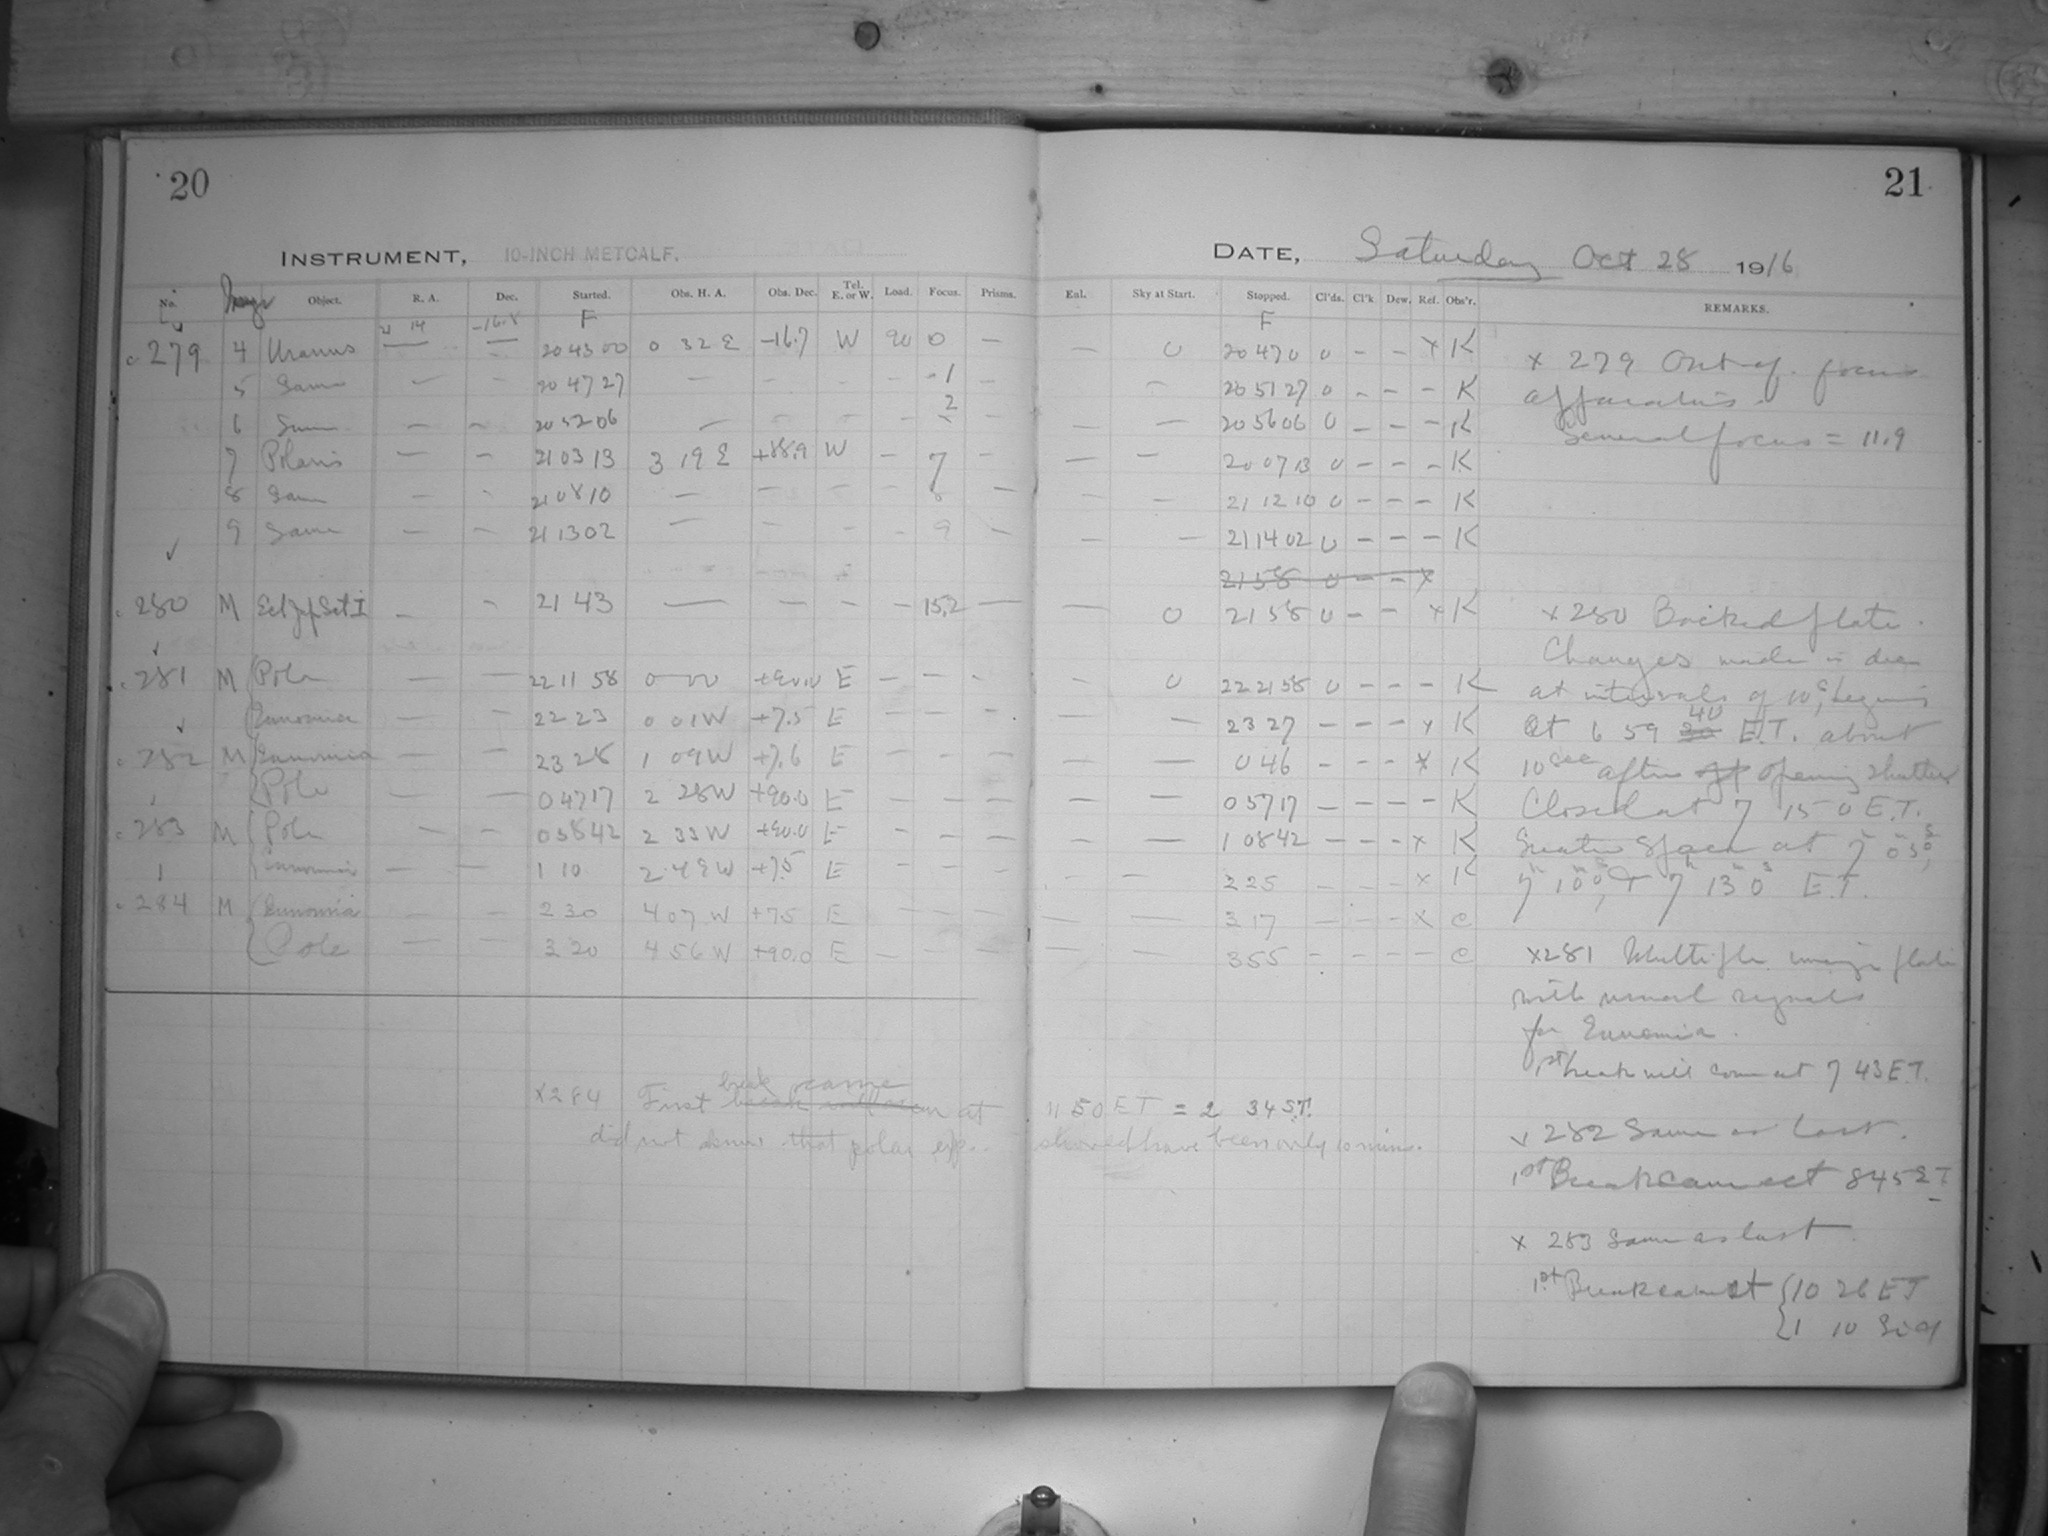 20
INSTRUMENT, 10-INCH METCALF.
No. Object. R. A. Dec. Started. Obs. H. A. Obs. Dec. Tel. E. or W. Load. Focus. Prisms.
14 -16.8 F
279 4 Uranus — — 20 43 00 0 32 E -16.7 W 90 0 —
5 Same — — 20 47 27 — — — 1 —
6 Same — — 20 52 06 — 2 —
7 Polaris — — 21 03 13 3 19 E +88.9 W — 7 —
8 Same — — 21 08 10 — — — 8 —
9 Same — — 21 13 02 — — — 9 —
280 M Ecl Jup Sat I — — 21 43 — — — — 15.2 —
281 M Pole — — 22 11 58 0 00 +90.0 E — — —
Eunomia — — 22 23 0 01 W +7.5 E — — —
282 M Eunomia — — 23 28 1 09 W +7.6 E — — —
Pole — — 0 47 17 2 28 W +90.0 E — — —
283 M Pole — — 0 58 42 2 33 W +90.0 E — — —
Eunomia — — 1 10 2 48 W +7.5 E — — —
284 M Eunomia — — 2 30 4 07 W +7.5 E — — —
Pole — — 3 20 4 56 W +90.0 E — — —
x 284 First break came at 11 50 ET = 2 34 S.T.
did not know that polar exp. should have been only 10 min.
21
DATE, Saturday Oct 28 1916
Exl. Sky at Start. Stopped. Cl'ds. Cl'k Dew. Ref. Obs'r. REMARKS.
F
— 0 20 47 0 0 — — x K
— 20 51 27 0 — — — K
— — 20 56 06 0 — — — K
— — 20 07 13 0 — — — K
— — 21 12 10 0 — — — K
— — 21 14 02 0 — — — K
21 58 0 — — x
— 0 21 58 0 — — x K
— 0 22 21 58 0 — — — K
— — 23 27 — — — x K
— — 0 46 — — — x K
— — 0 57 17 — — — — K
— — 1 08 42 — — — x K
— — 2 25 — — — x K
— — 3 17 — — — x C
— — 3 55 — — — — C
x 279 Out of focus
apparatus.
General focus = 11.9
x 280 Backed plate.
Changes made in dec
at intervals of 10s, begins
at 6 59 40 E.T. about
10 sec after opening shutter
Closed at 7 15 0 E.T.
Greater space at 7h 05m 0s,
7h 10m 0s, & 7h 13m 0s E.T.
x 281 Multiple image plate
with usual signals
for Eunomia.
1st break will come at 7 43 E.T.
x 282 Same as last.
1st Break came at 8 45 E T
x 283 Same as last.
1st Break came at { 10 26 ET
{ 1 10 Sid